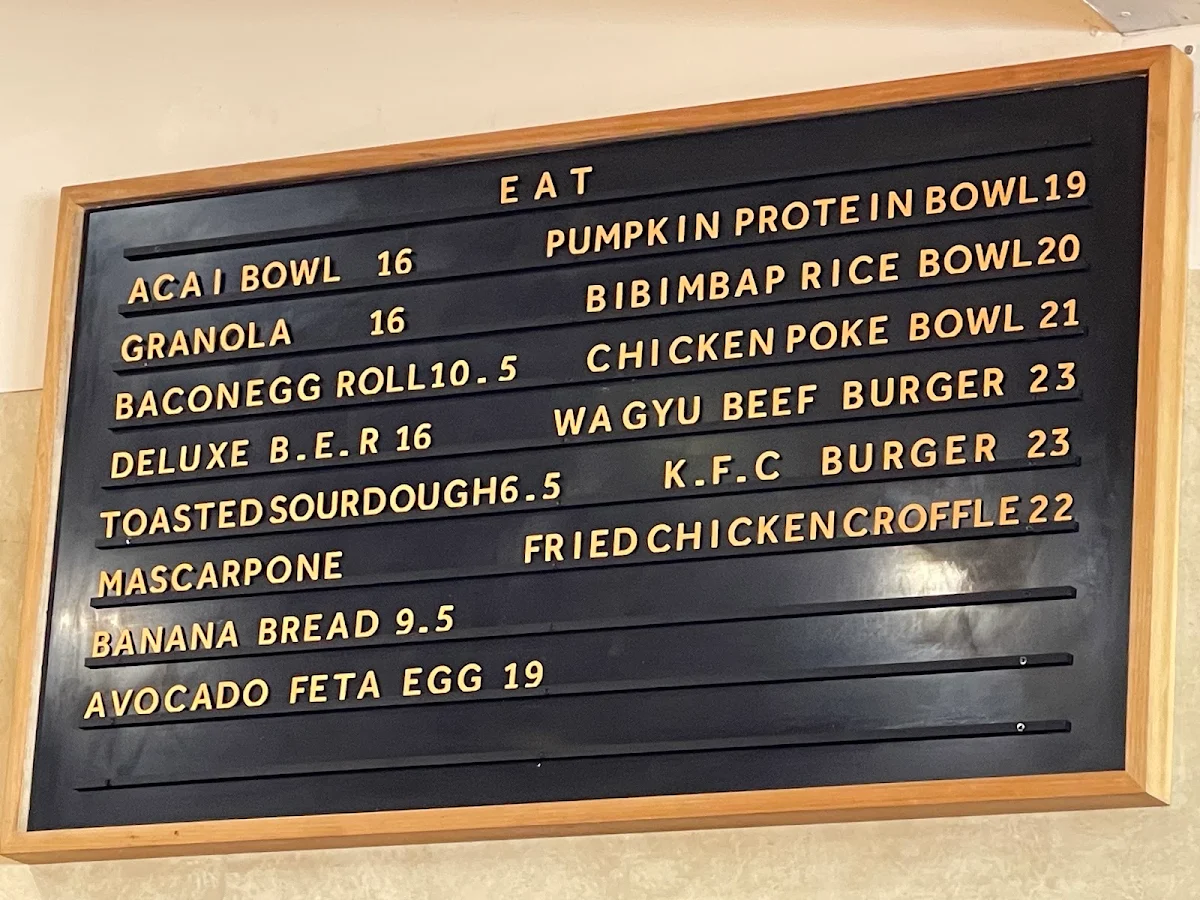 EAT
ACAI BOWL 16
GRANOLA 16
BACONEGG ROLL10.5
DELUXE B.E.R 16
TOASTEDSOURDOUGH6.5
MASCARPONE
BANANA BREAD 9.5
AVOCADO FETA EGG 19
PUMPKIN PROTEIN BOWL19
BIBIMBAP RICE BOWL20
CHICKEN POKE BOWL 21
WAGYU BEEF BURGER 23
K.F.C BURGER 23
FRIED CHICKEN CROFFLE 22